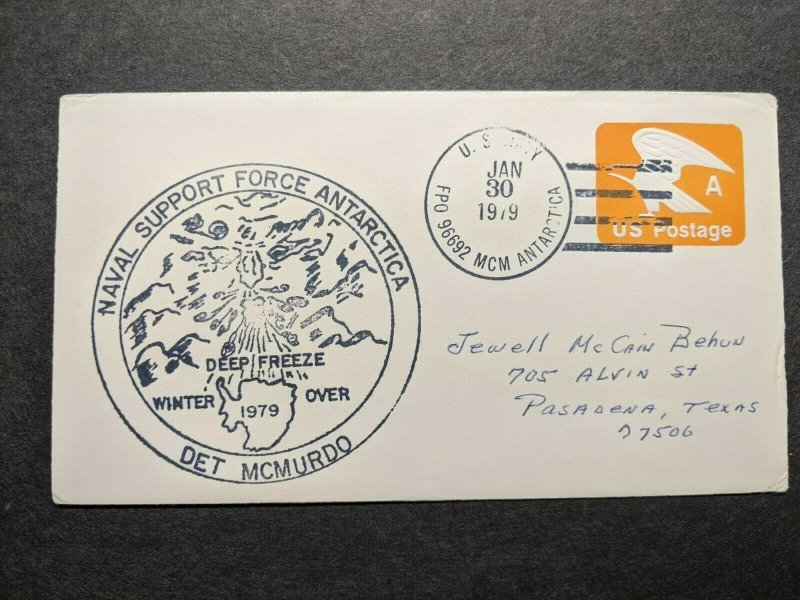 NAVAL SUPPORT FORCE ANTARCTICA
DEEP FREEZE
WINTER OVER
1979
DET MCMURDO
U.S. NAVY
JAN
30
1979
FPO 96692 MCM ANTARCTICA
A
US Postage
Jewell McCain Behun
705 ALVIN St
PASADENA, TEXAS
77506